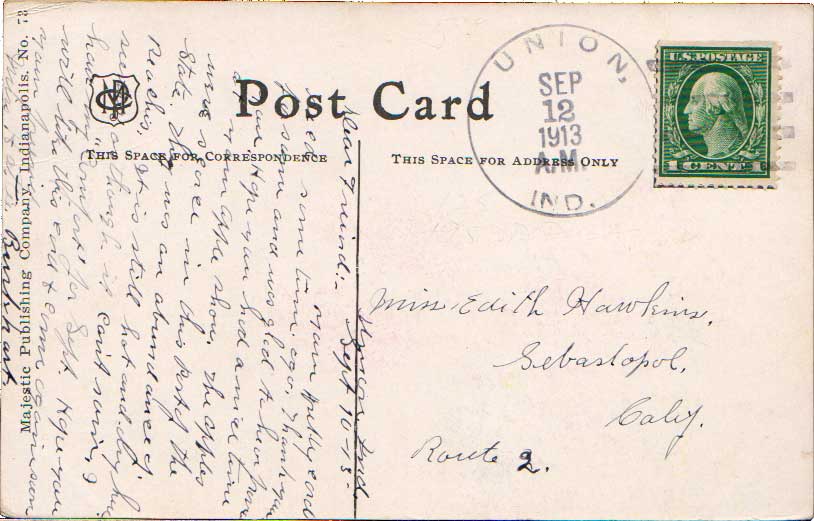 Post Card
THIS SPACE FOR CORRESPONDENCE
THIS SPACE FOR ADDRESS ONLY
UNION,
SEP
12
1913
A.M.
IND.
U.S. POSTAGE
1 CENT 1
Miss Edith Hawkins.
Sebastopol,
Calif.
Route 2.
Ind.
Sept 10-13-
Dear Friend:-
card some time ago. Thank you
for same and was glad to hear from
you. Hope you had a nice time
at your apple show. The apples
were scarce in this part of the
State. They was an abundance of
Peaches. It is still hot and dry here
Sept. Hope you
will like this card & come again soon
Your friend
Burkhart
Majestic Publishing Company, Indianapolis. No. 73